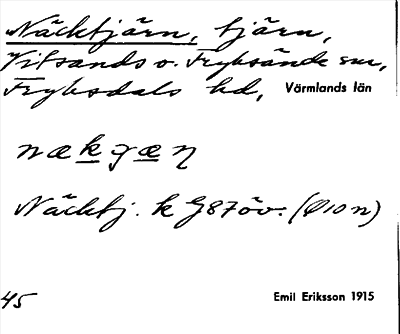 Näcktjärn, tjärn,
Vitsands o. Fryksände snr,
Fryksdals hd, Värmlands län
nækgæn
Näcktj. k G87öv. (Ø10n)
45 Emil Eriksson 1915